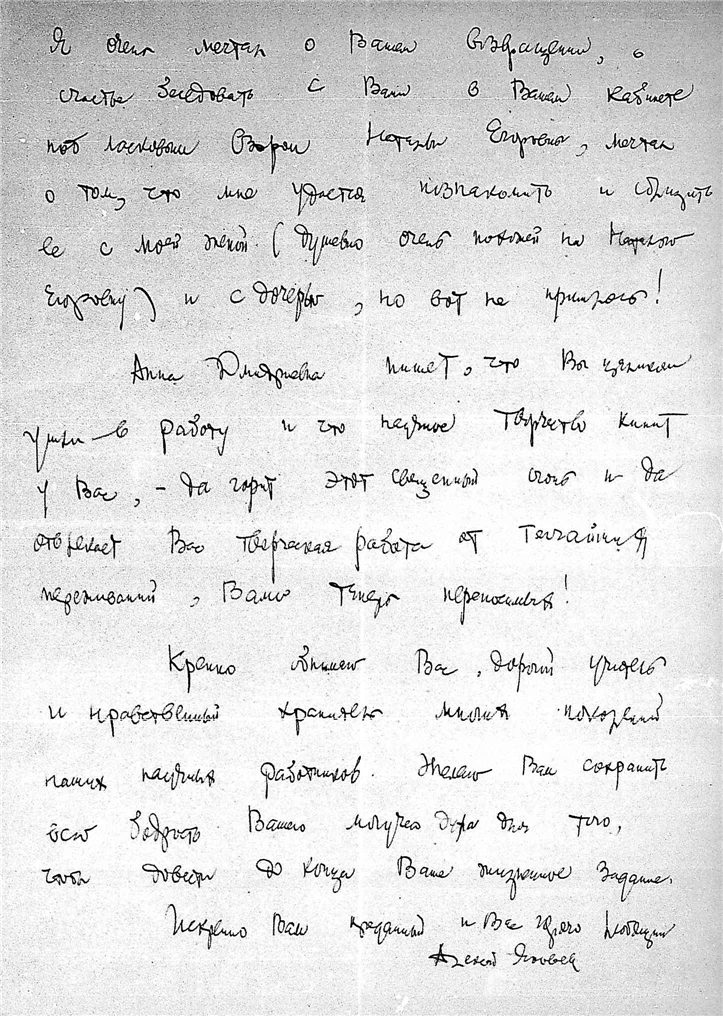 Я очень мечтал о Вашем возвращении, о
счастье беседовать с Вами в Вашем кабинете
под ласковым взором Натальи Егоровны, мечтал
о том, что мне удастся познакомить и сблизить
ее с моей женой (душевно очень похожей на Наталью
Егоровну) и с дочерью, но вот не пришлось!
Анна Дмитриевна пишет, что Вы целиком
ушли в работу и что научное творчество кипит
у Вас, – да горит этот священный огонь и да
отвлекает Вас творческая работа от тягчайших
переживаний, Вами теперь переносимых!
Крепко обнимаю Вас, дорогой учитель
и нравственный хранитель многих поколений
наших научных работников. Желаю Вам сохранить
всю бодрость Вашего могучего духа для того,
чтобы довести до конца Ваше жизненное задание.
Искренно Вам преданный и Вас горячо любящий
Алексей